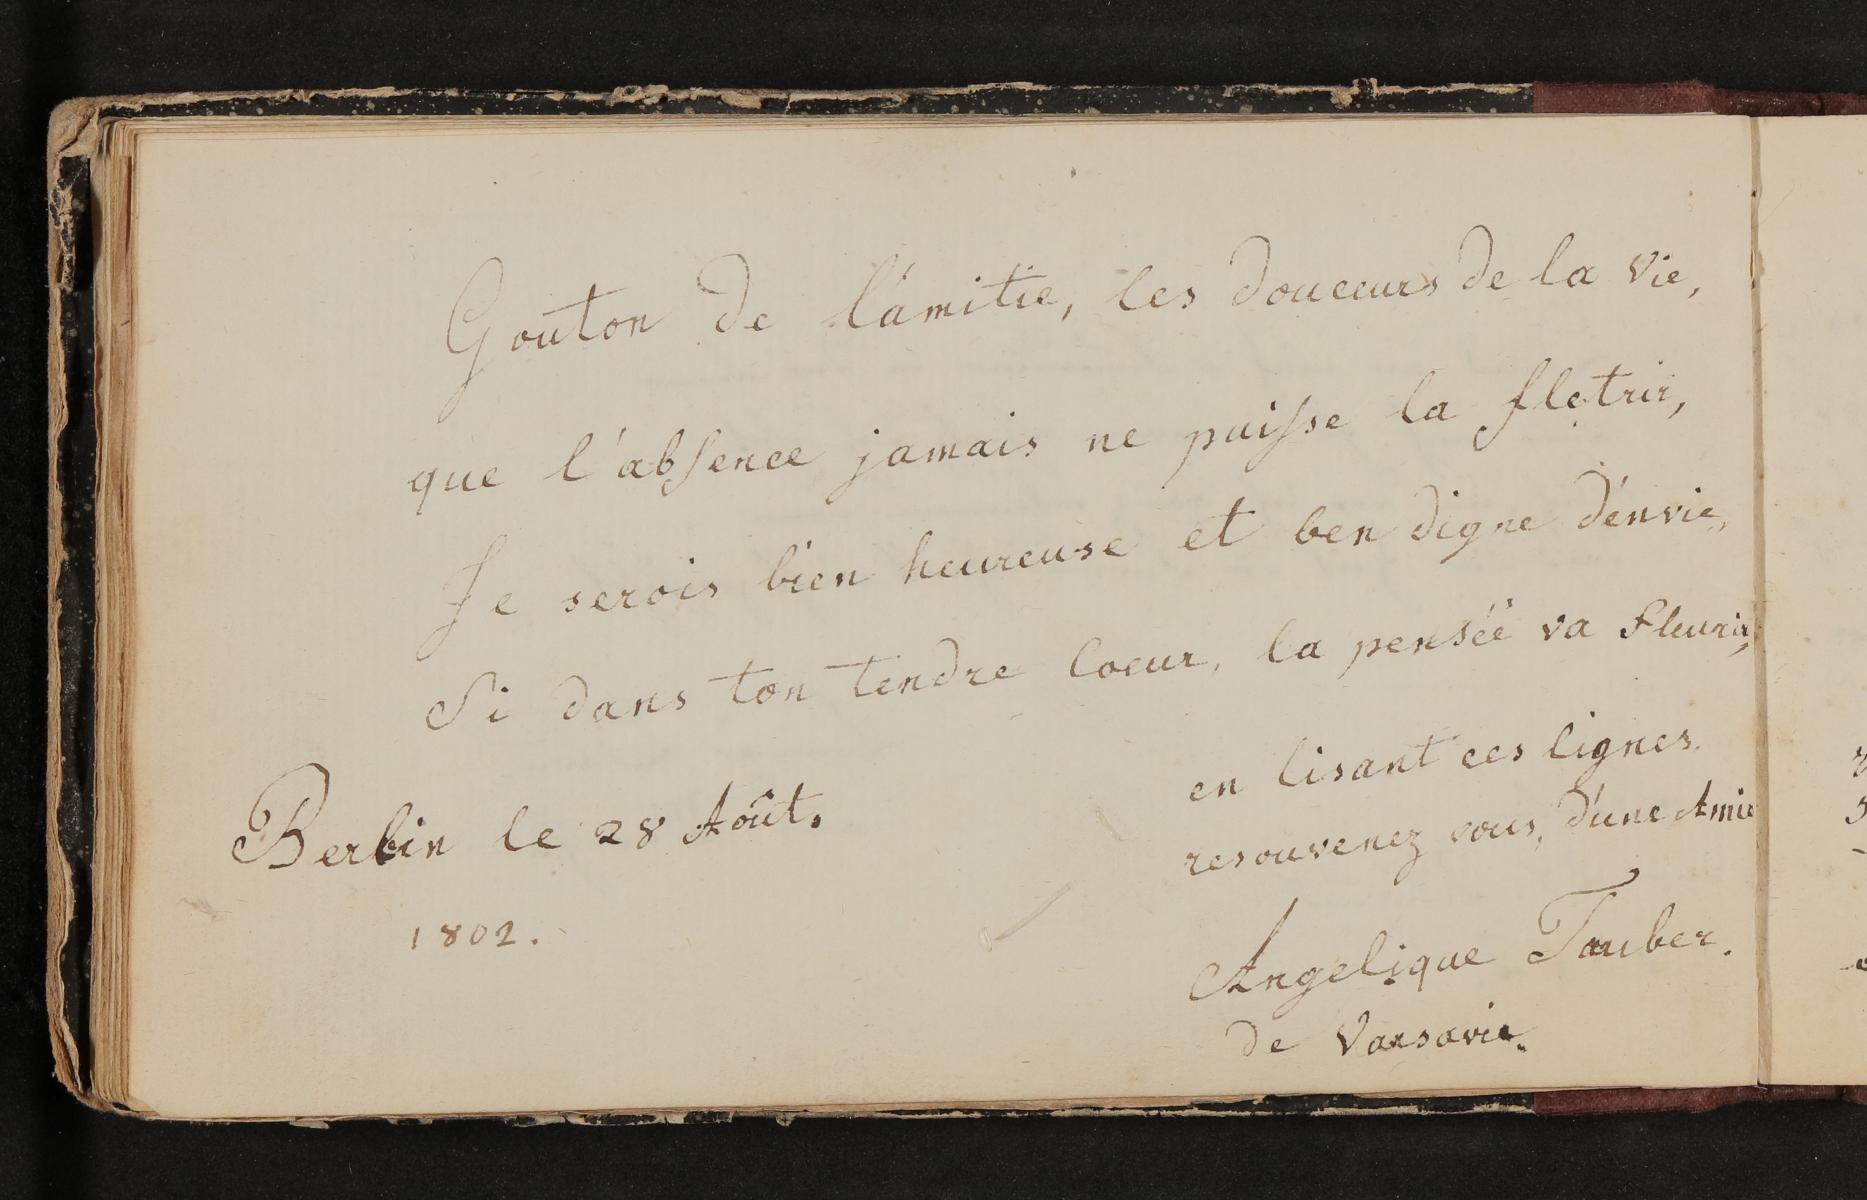 Gouton de l'ámitie, les douceurs de la vie,
que l'absence jamais ne puisse la fletrir,
Je serois bien heureuse et ben digne d'envie,
Si dans ton tendre Coeur, la penséé va fleurir,
en lisant ces lignes.
resouvenez vous, d'une Amie
Berlin le 28 Août.
1802.
Angelique Tauber.
de Varsavie.